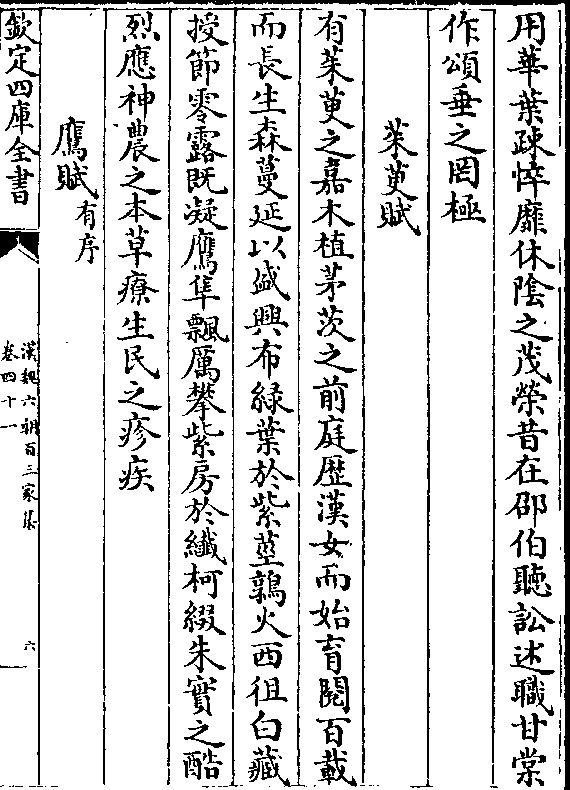 用華葉疎悴靡休陰之茂榮昔在邵伯聽訟述職甘棠
作頌垂之罔極
茱萸賦
有茱萸之嘉木植茅茨之前庭歷漢女而始育閱百載
而長生森蔓延以盛興布緑葉於紫莖鶉火西徂白藏
授節零露既凝鷹隼飄厲攀紫房於纖柯綴朱實之酷
烈應神農之本草療生民之疹疾
鷹賦有序
欽定四庫全書
漢魏六朝百三家集
卷四十一
六